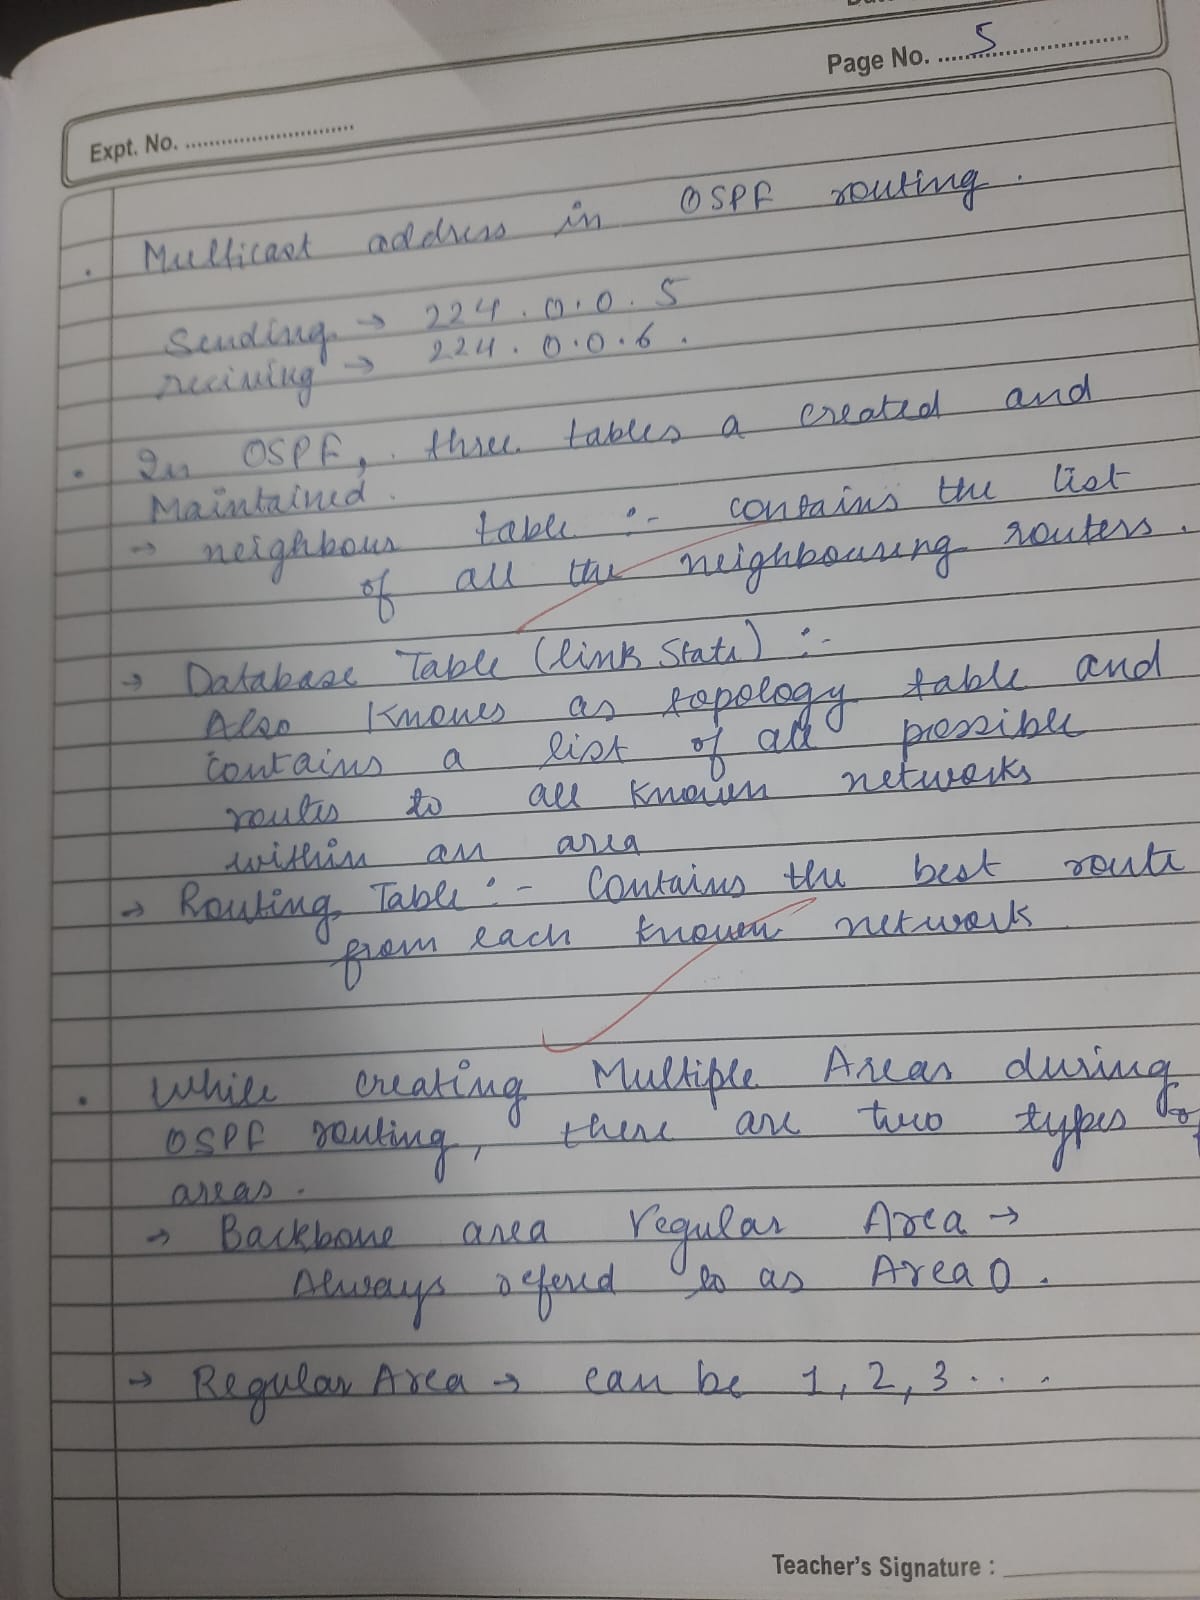 Page No. 5
Expt. No.
. Multicast address in OSPF routing.
Sending → 224.0.0.5
reciving → 224.0.0.6.
. In OSPF, three tables a created and
Maintained.
→ neighbour table :- contains the list
of all the neighbouring routers.
→ Database Table (link State) :-
Also Known as topology table and
contains a list of all possible
routes to all known networks
within an area
→ Routing Table :- Contains the best route
from each known network
. While creating Multiple Areas during
OSPF routing, there are two types of
areas.
→ Backbone area regular Area →
Always refered to as Area 0.
→ Regular Area → can be 1, 2, 3 ....
Teacher's Signature :